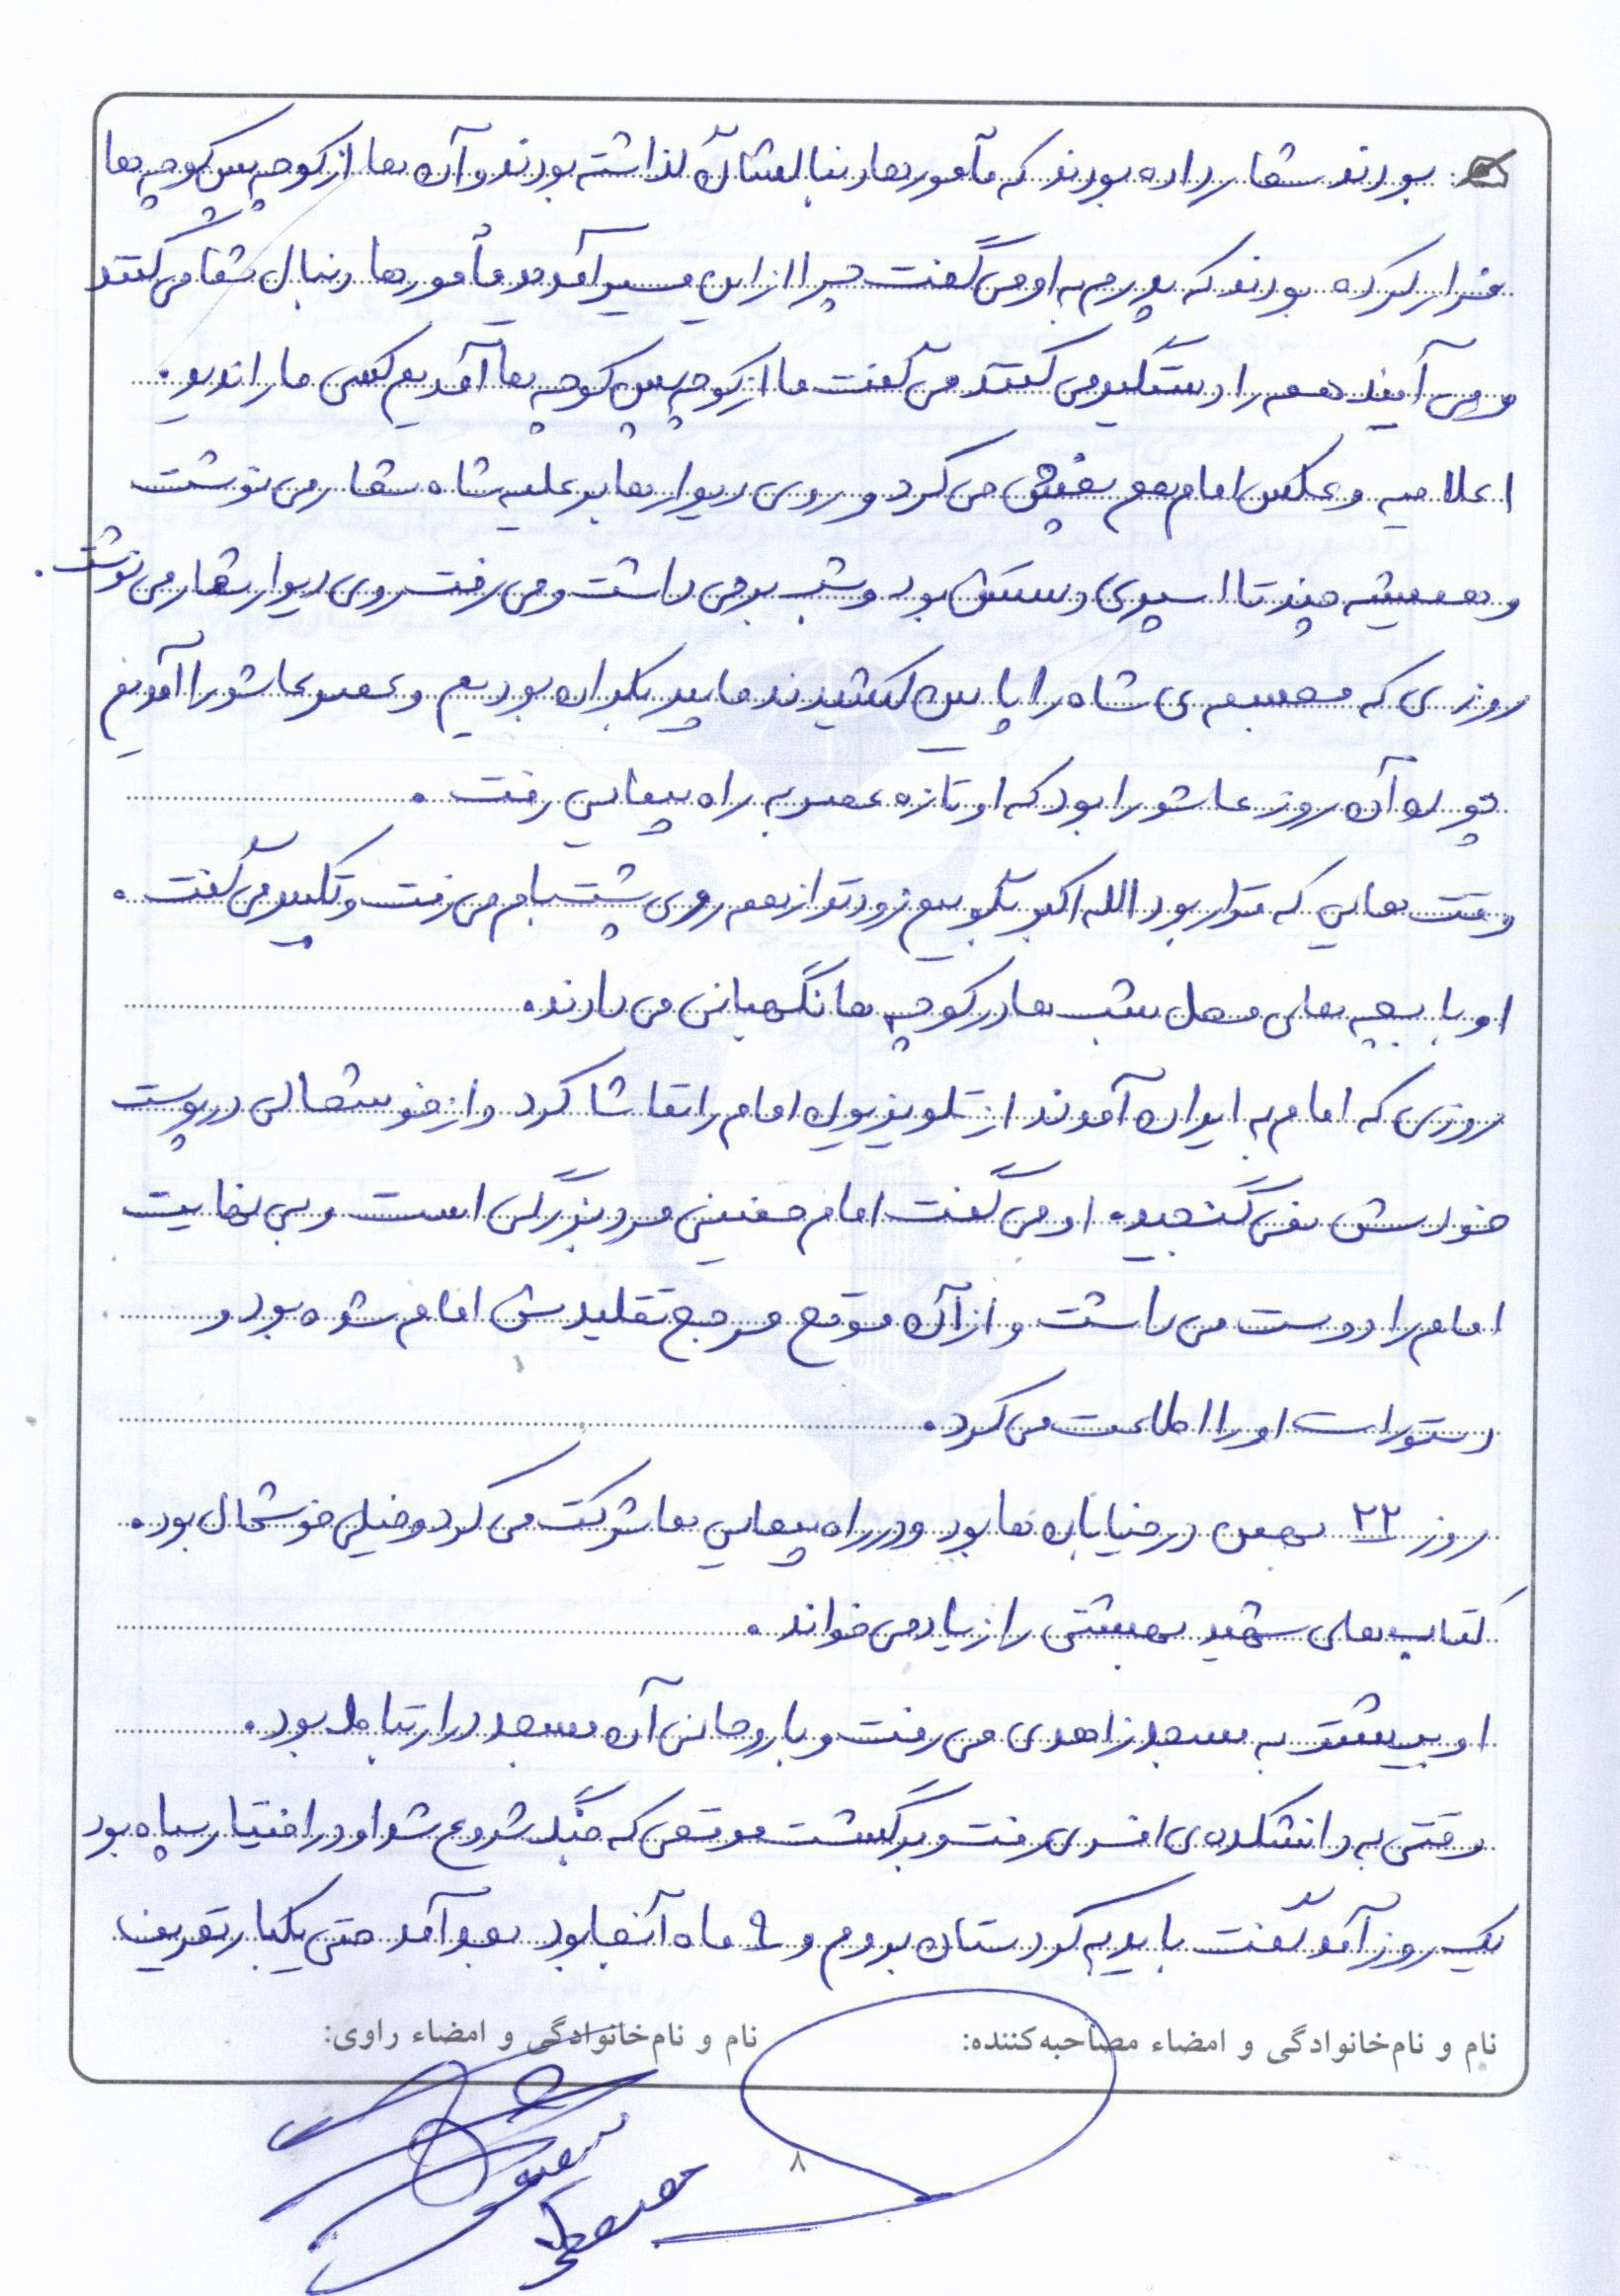 بودند شعار داده بودند که مأمورها دنبالشان گذاشته بودند و آن ها از کوچه پس کوچه ها
فرار کرده بودند که پدرم به او می گفت چرا از این مسیر آمدید مأمورها دنبال شما می گشتند
و می آیند همه را دستگیر می کنند می گفت ما از کوچه پس کوچه ها آمدیم کسی ما را ندید.
اعلامیه و عکس امام هم پخش می کرد و روی دیوارها بر علیه شاه شعار می نوشت
و همیشه چند تا اسپری دستش بود و شب بر می داشت و می رفت روی دیوار شعار می نوشت.
روزی که مجسمه ی شاه را پایین کشیدند ما پیر بکران بودیم و عصر عاشورا آمدیم
چون آن روز عاشورا بود که او تازه عصر به راه پیمایی رفت.
وقت هایی که قرار بود الله اکبر بگوییم زودتر از همه روی پشت بام می رفت و تکبیر می گفت.
او با بچه های محل شب ها در کوچه ها نگهبانی می دادند.
روزی که امام به ایران آمدند از تلویزیون امام را تماشا کرد و از خوشحالی در پوست
خودش نمی گنجید. او می گفت امام خمینی مرد بزرگی است و بی نهایت
امام را دوست می داشت و از آن موقع مرجع تقلیدش امام شده بود و
دستورات او را اطاعت می کرد.
روز ۲۲ بهمن در خیابان ها بود و در راه پیمایی ها شرکت می کرد و خیلی خوشحال بود.
کتاب های شهید بهشتی را زیاد می خواند.
او بیشتر به مسجد زاهدی می رفت و با روحانی آن مسجد در ارتباط بود.
وقتی به دانشکده ی افسری رفت و برگشت موقعی که جنگ شروع شد او در اختیار سپاه بود
یک روز آمد گفت باید به کردستان بروم و ۹ ماه آنجا بود بعد آمد حتی یکبار تعریف
نام و نام‌خانوادگی و امضاء مصاحبه‌کننده:
نام و نام‌خانوادگی و امضاء راوی:
۸